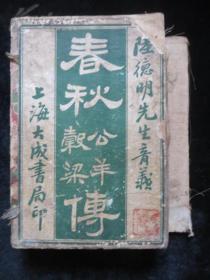 陸德明先生音義
春秋公羊穀梁傳
上海大成書局印